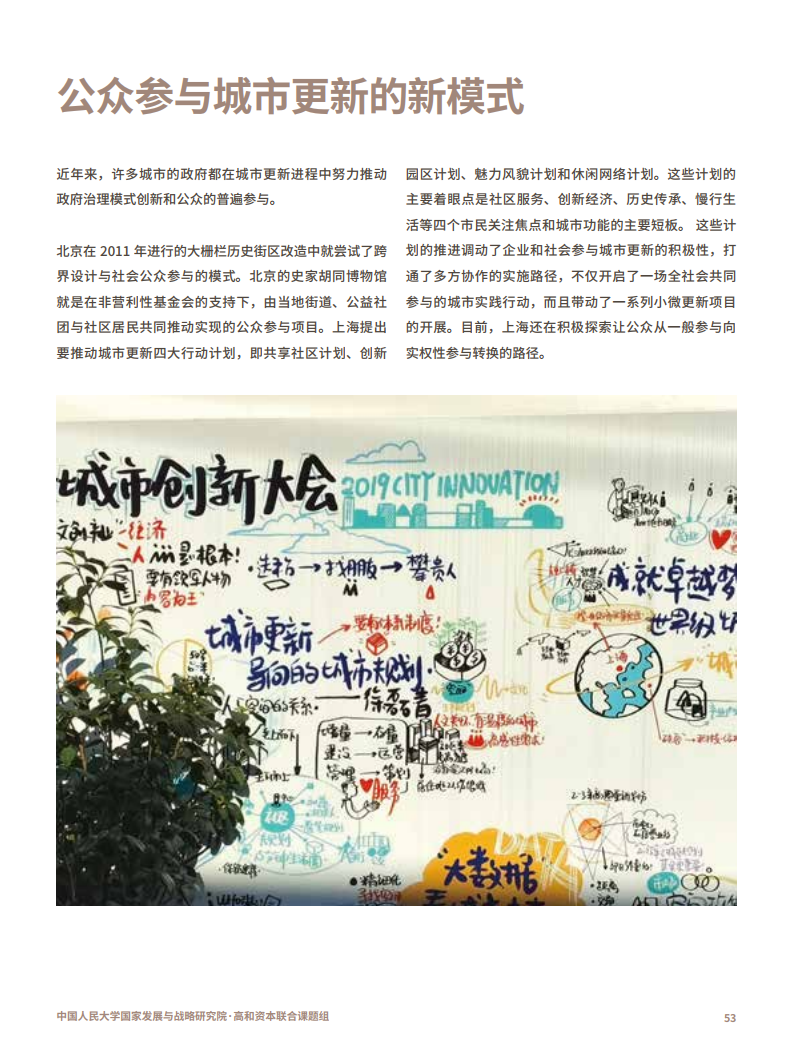 公众参与城市更新的新模式
近年来，许多城市的政府都在城市更新进程中努力推动
政府治理模式创新和公众的普遍参与。
北京在 2011 年进行的大栅栏历史街区改造中就尝试了跨
界设计与社会公众参与的模式。北京的史家胡同博物馆
就是在非营利性基金会的支持下，由当地街道、公益社
团与社区居民共同推动实现的公众参与项目。上海提出
要推动城市更新四大行动计划，即共享社区计划、创新
园区计划、魅力风貌计划和休闲网络计划。这些计划的
主要着眼点是社区服务、创新经济、历史传承、慢行生
活等四个市民关注焦点和城市功能的主要短板。 这些计
划的推进调动了企业和社会参与城市更新的积极性，打
通了多方协作的实施路径，不仅开启了一场全社会共同
参与的城市实践行动，而且带动了一系列小微更新项目
的开展。目前，上海还在积极探索让公众从一般参与向
实权性参与转换的路径。
城市创新大会
2019 CITY INNOVATION
经济
人 是根本!
要有领军人物
"内容为王"
攀贵人
成就卓越梦
世界级城
城市更新
导向的城市规划
要有体系制度!
徐磊青
人与空间的关系
上海
增量→存量
建设→运营
管理→策划
服务
DATA
"大数据
中国人民大学国家发展与战略研究院·高和资本联合课题组
53